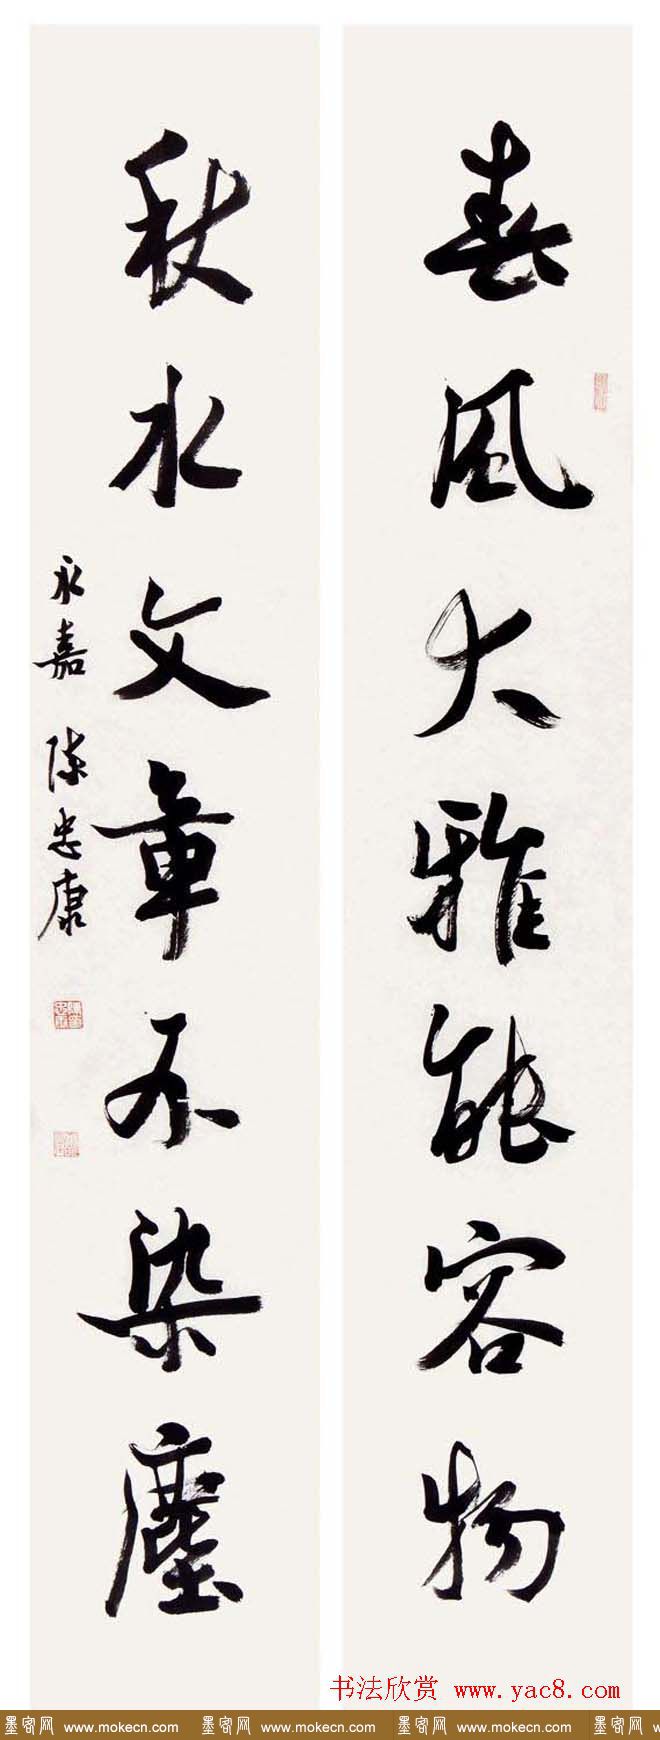 春风大雅能容物
秋水文章不染塵
永嘉 陈忠康
书法欣赏 www.yac8.com
墨客网 www.mokecn.com 墨客网 www.mokecn.com 墨客网 www.mokecn.com 墨客网 www.mokecn.com